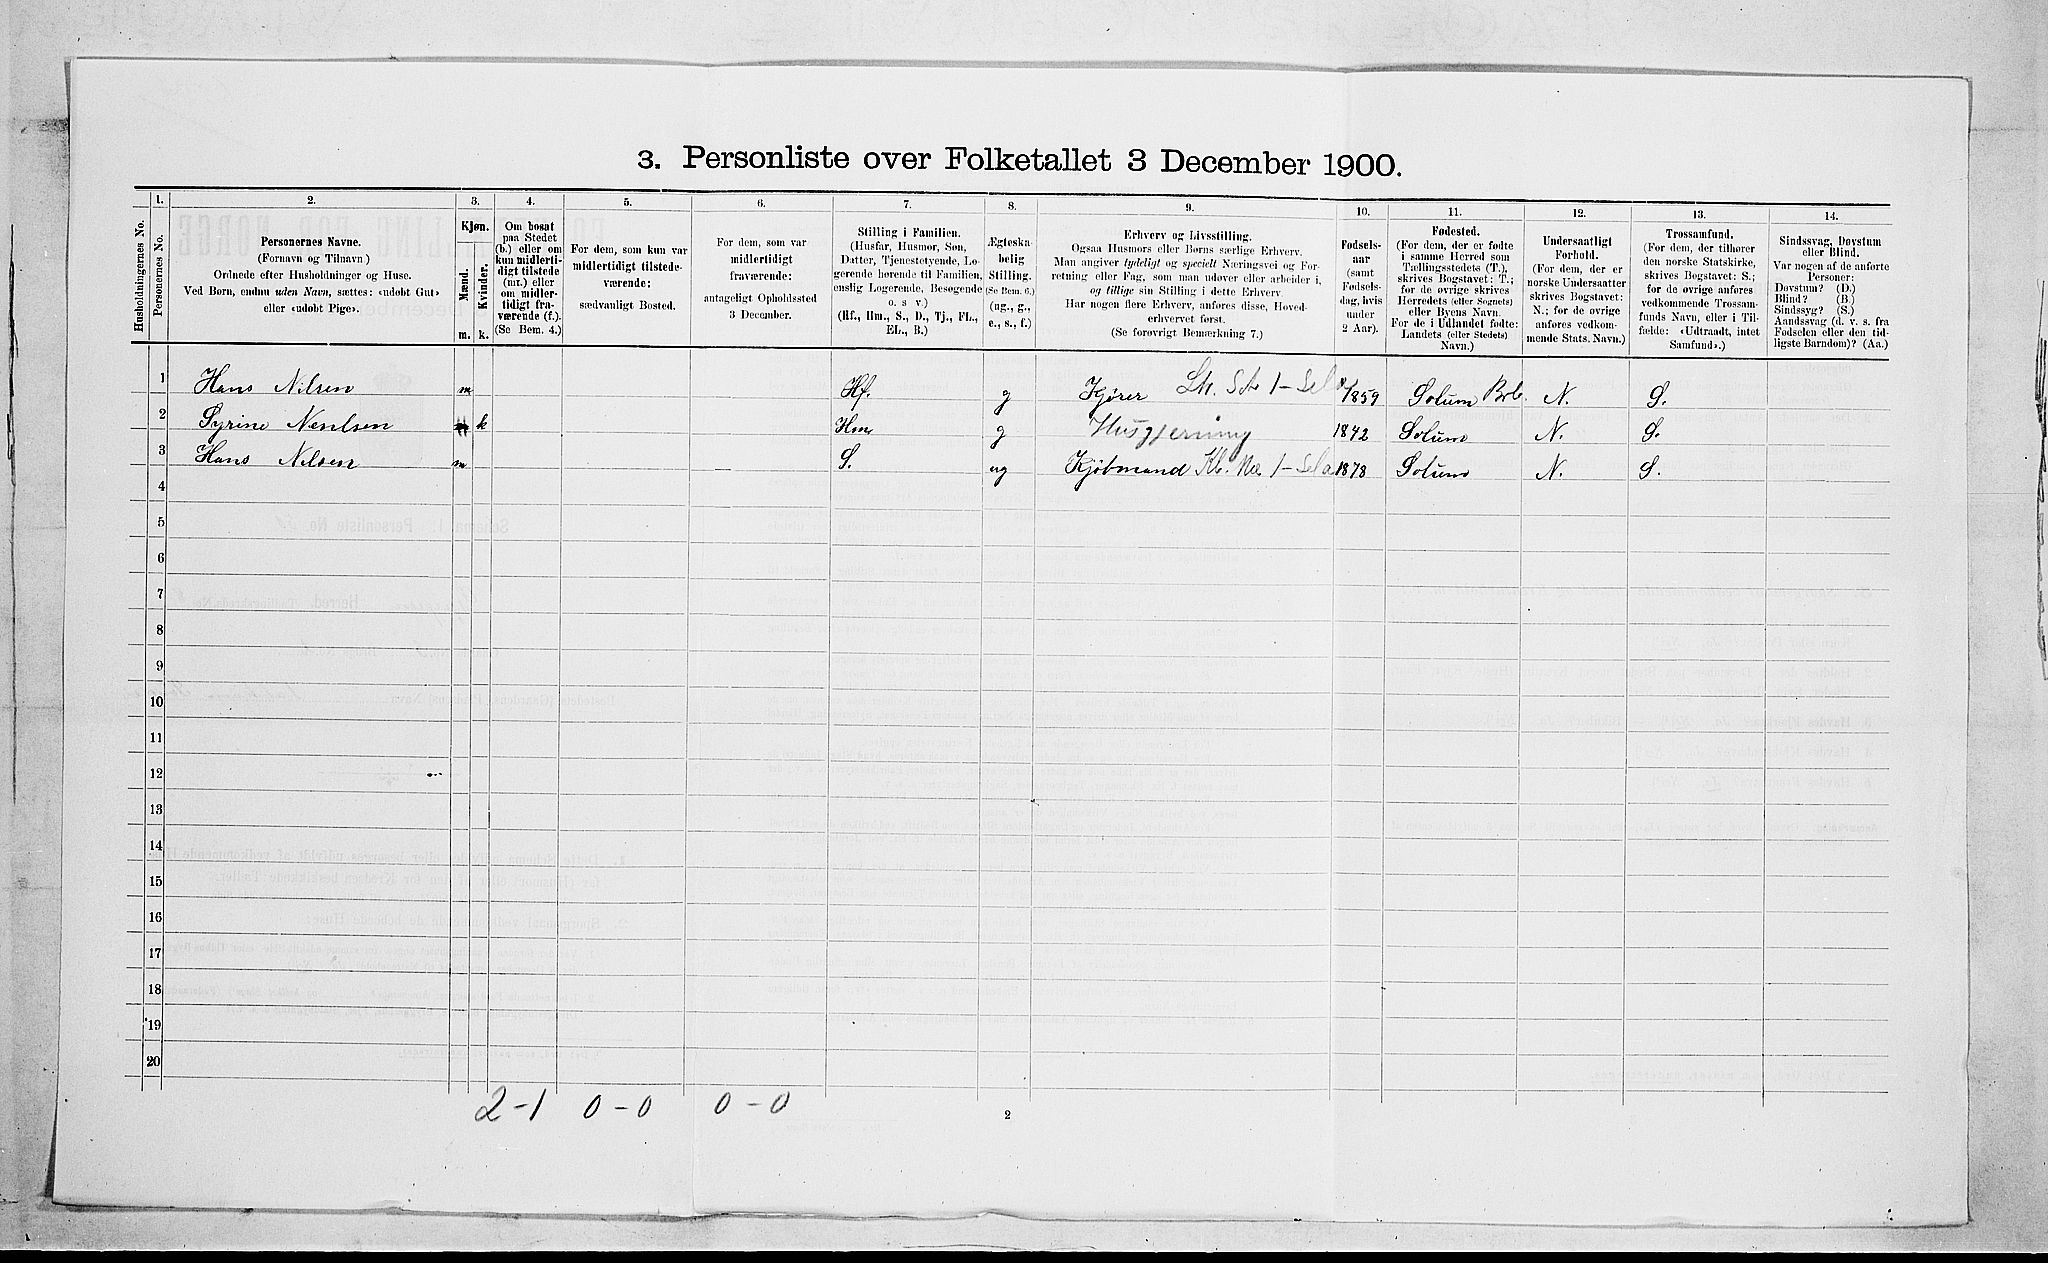 3. Personliste over Folketallet 3 December 1900.
1. 2. 3. 4. 5. 6. 7. 8. 9. 10. 11. 12. 13. 14.
Husholdningernes No.
Personernes No.
Personernes Navne.
(Fornavn og Tilnavn)
Ordnede efter Husholdninger og Huse.
Ved Børn, endnu uden Navn, sættes: «udøbt Gut»
eller «udøbt Pige».
Kjøn.
Mænd.
Kvinder.
m. k.
Om bosat
paa Stedet
(b.) eller om
kun midlerti-
digt tilstede
(mt.) eller
om midler-
tidigt fra-
værende (f.).
(Se Bem. 4.)
For dem, som kun var
midlertidigt tilstede-
værende:
sædvanligt Bosted.
For dem, som var
midlertidigt
fraværende:
antageligt Opholdssted
3 December.
Stilling i Familien.
(Husfar, Husmor, Søn,
Datter, Tjenestetyende, Lo-
gerende hørende til Familien,
enslig Logerende, Besøgende
o. s v.)
(Hf., Hm., S., D., Tj., FL.,
EL., B.)
Ægteska-
belig
Stilling.
(Se Bem. 6.)
(ug., g.,
e., s., f.)
Erhverv og Livsstilling.
Ogsaa Husmors eller Børns særlige Erhverv.
Man angiver tydeligt og specielt Næringsvei og For-
retning eller Fag, som man udøver eller arbeider i,
og tillige sin Stilling i dette Erhverv.
Har nogen flere Erhverv, anføres disse, Hoved-
erhvervet først.
(Se forøvrigt Bemærkning 7.)
Fødsels-
aar
(samt
Fødsels-
dag, hvis
under
2 Aar).
Fødested.
(For dem, der er fødte
i samme Herred som
Tællingsstedets (T.),
skrives Bogstavet: T.;
for de øvrige skrives
Herredets (eller Sognets)
eller Byens Navn.
For de i Udlandet fødte:
Landets (eller Stedets)
Navn.)
Undersaatligt
Forhold.
(For dem, der er
norske Undersaatter
skrives Bogstavet:
N.; for de øvrige
anføres vedkom-
mende Stats. Navn.)
Trossamfund.
(For dem, der tilhører
den norske Statskirke,
skrives Bogstavet: S.;
for de øvrige anføres
vedkommende Trossam-
funds Navn, eller i Til-
fælde: «Udtraadt, intet
Samfund».)
Sindssvag, Døvstum
eller Blind.
Var nogen af de anførte
Personer:
Døvstum? (D.)
Blind? (B.)
Sindssyg? (S.)
Aandssvag (d. v. s. fra
Fødselen eller den tid-
ligste Barndom)? (Aa.)
1 Hans Nilsen m Hf. g Kjører 1859 Solum N. S.
2 Syrine Nenlsen k Hm g Husgjerning 1842 Solum N. S.
3 Hans Nilsen m S. ug Kjøbmand 1878 Solum N. S.
4
5
6
7
8
9
10
11
12
13
14
15
16
17
18
19
20
2-1 0-0 0-0
2